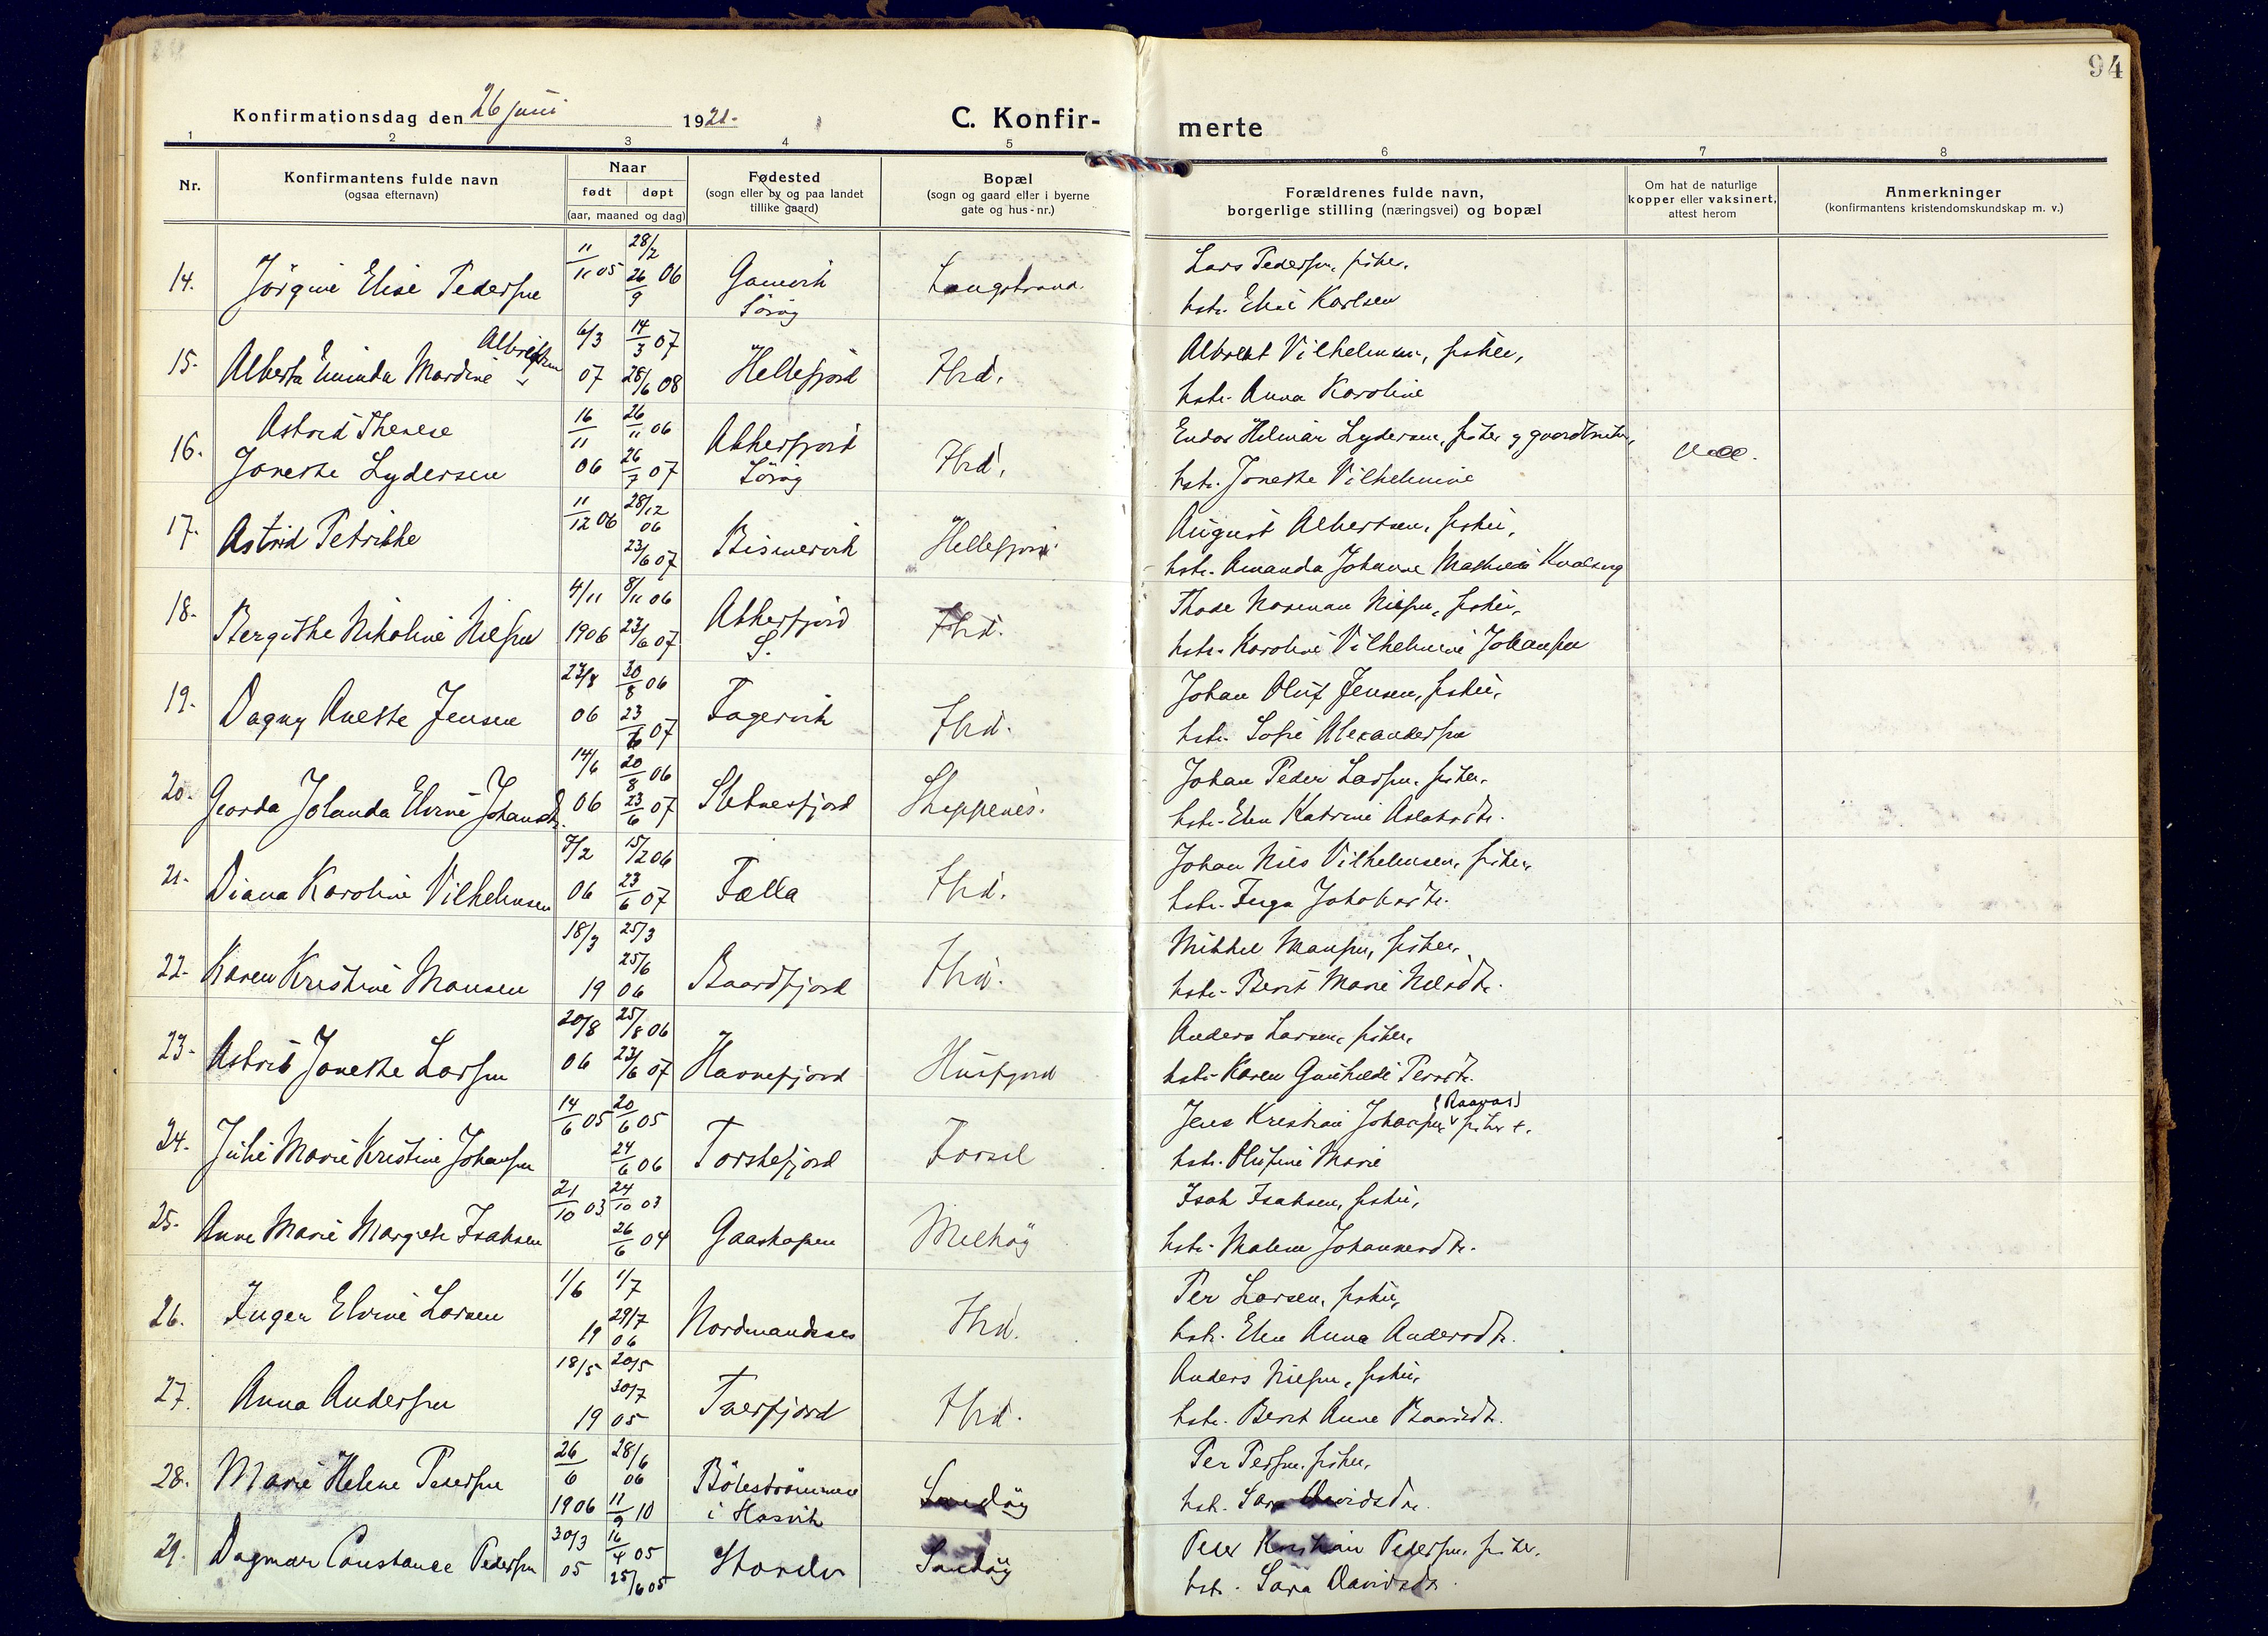 94
Konfirmationsdag den 26 juni 1921.
C. Konfir-
merte
1 2 3 4 5 6 7 8
Nr.
Konfirmantens fulde navn
(ogsaa efternavn)
Naar
født døpt
(aar, maaned og dag)
Fødested
(sogn eller by og paa landet
tillike gaard)
Bopæl
(sogn og gaard eller i byerne
gate og hus-nr.)
Forældrenes fulde navn,
borgerlige stilling (næringsvei) og bopæl
Om hat de naturlige
kopper eller vaksinert,
attest herom
Anmerkninger
(konfirmantens kristendomskundskap m. v.)
14. Jörgine Elise Pedersen 11/11 05 28/2 26/9 06 Gamvik Sörøy Langstrand
Lars Pedersen, fisker,
hstr. Elise Karlsen
15. Alberta Eminda Mardine Albrigtsen 6/3 07 14/3 07 28/6 08 Hellefjord Ibid.
Albrekt Vilhelmsen, fisker,
hstr. Anna Karoline
16. Astrid Therese
Jonette Lydersen 16/11 06 26/11 06 26/7 07 Akkerfjord Sörøy Ibid.
Endor Hilmar Lydersen, fisker og gaardbruker,
hstr. Jonette Vilhelmine
17. Astrid Petrikke 11/12 06 28/12 06 23/6 07 Bismervik Hellefjord
August Albertsen, fisker,
hstr. Amanda Johanne Mathilde Kvalsøg
18. Bergitthe Nikoline Nilsen 4/11 1906 8/11 06 23/6 07 Akkerfjord S. Ibid.
Thode Norman Nilsen, fisker,
hstr. Karoline Vilhelmine Johansen
19. Dagny Anette Jensen 23/8 06 30/8 06 23/6 07 Fagervik Ibid.
Johan Oluf Jensen, fisker,
hstr. Sofie Alexandersen
20. Gearda Jolanda Elvine Johansdtr. 14/6 06 20/8 06 23/6 07 Sletnesfjord Skippernes.
Johan Peder Larsen, fisker,
hstr. Elen Katrine Aslaksdtr.
21. Diana Karoline Vilhelmsen 7/2 06 15/2 06 23/6 07 Fella Ibid.
Johan Nils Vilhelmsen, fisker,
hstr. Inga Johansdtr.
22. Karen Kristine Monsen 18/3 25/3 25/6 19 06 Baardfjord Ibid.
Mikkel Monsen, fisker,
hstr. Berit Marie Nilsdtr.
23. Astrid Jonette Larsen 20/8 06 25/8 06 23/6 07 Havnefjord Husfjord
Anders Larsen, fisker,
hstr. Karen Gunhilde Persdtr.
24. Julie Marie Kristine Johansen 14/6 05 20/6 05 24/6 06 Torskefjord Forsøl
Jens Kristian Johansen, fisker +.
hstr. Olufine Marie
25. Anne Marie Margrete Isaksen 21/10 03 24/10 03 26/6 04 Gaashopen Melkøy
Isak Isaksen, fisker,
hstr. Malene Johannesdtr.
26. Inger Elvine Larsen 1/6 1/7 29/7 19 06 Nordmandsnes Ibid.
Per Larsen, fisker,
hstr. Elen Anna Andersdtr.
27. Anna Andersen 18/5 20/5 30/7 19 05 Tverfjord Ibid.
Anders Nilsen, fisker,
hstr. Berit Anne Baardsdtr.
28. Marie Helene Pedersen 26/6 1906 28/6 06 11/9 10 Bölestrømmen i Hasvik Sandøy
Per Persen, fisker,
hstr. Sara Davidsdtr.
29. Dagmar Constance Pedersen 30/3 05 16/4 05 25/6 05 Sandøy
Peder Kristian Pedersen, fisker,
hstr. Sara Davidsdtr.